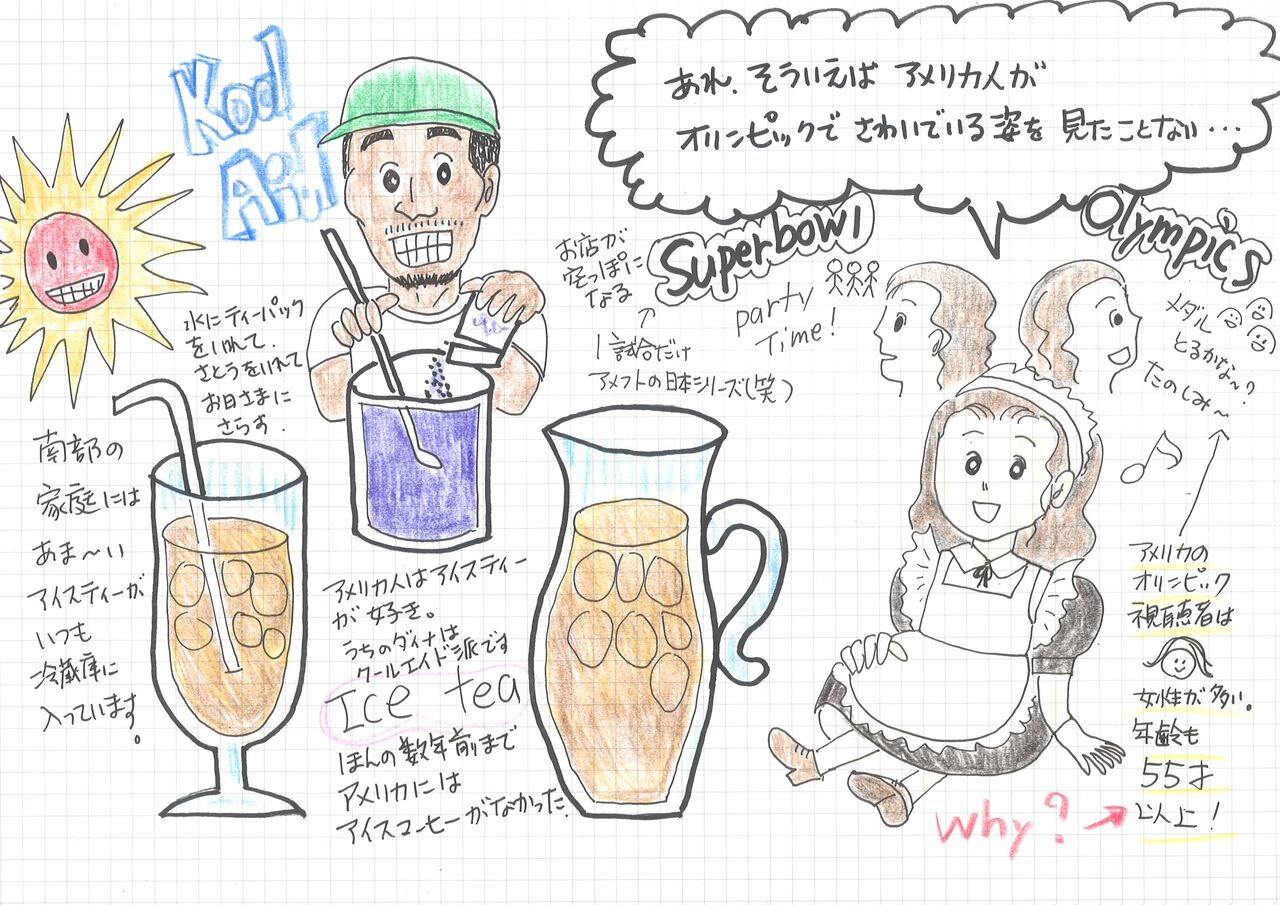 Kool
Aid
あれ、そういえば アメリカ人が
オリンピックで さわいでいる姿を 見たことない…
Superbowl
Olympic's
お店が
空っぽに
なる
party
Time!
1試合だけ
アメフトの日本シリーズ(笑)
メダル
とるかな〜?
たのしみ〜
水にティーパック
をいれて、
さとうをいれて
お日さまに
さらす.
南部の
家庭には
あま〜い
アイスティーが
いつも
冷蔵庫に
入っています。
アメリカ人はアイスティー
が好き。
うちのダイナは
クールエイド派です
Ice tea
ほんの数年前まで
アメリカには
アイスコーヒーがなかった.
アメリカの
オリンピック
視聴者は
女性が多い。
年齢も
55才
以上!
Why?